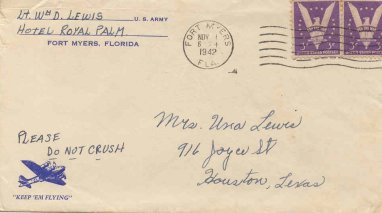 Lt. Wm D. Lewis
U. S. ARMY
HOTEL ROYAL PALM
FORT MYERS, FLORIDA
FORT MYERS
NOV 1
1942
FLA.
PLEASE
DO NOT CRUSH
Mrs. Una Lewis
916 Joyce St
Houston, Texas
"KEEP 'EM FLYING"